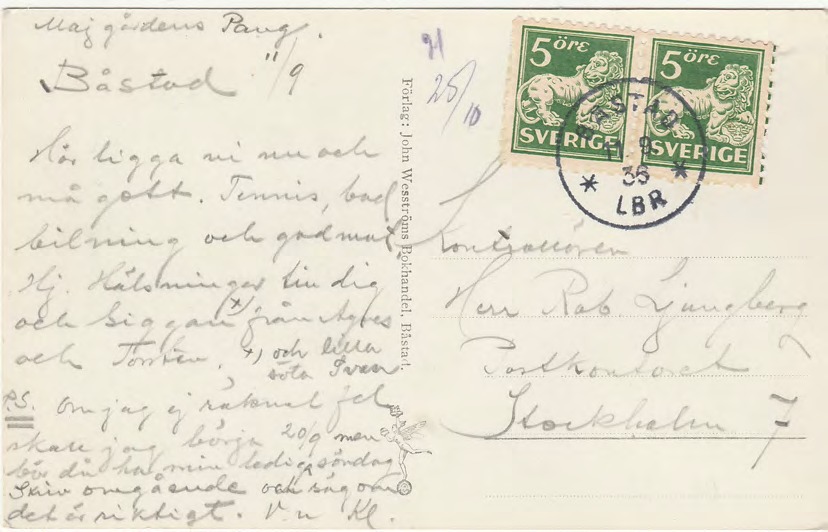 Majgårdens Pang.
Båstad 11/9
Här ligga vi nu och
må gott. Tennis, bad
bilning och god mat.
Hj. Hälsningar till dig
och Siggan x) från Agnes
och Torsten. x) och lilla
söta Ivan
P.S. Om jag ej räknat fel
skall jag börja 20/9 men
bör du ha min lediga söndag
Skriv omgående och säg om
det är riktigt. V. u Kl.
Förlag: John Wesströms Bokhandel, Båstad.
21
25/10
5 ÖRE
SVERIGE
5 ÖRE
SVERIGE
BÅSTAD
11 9
36
* LBR *
Kontrollören
Herr Rob. Ljungberg
Postkontoret
Stockholm 7